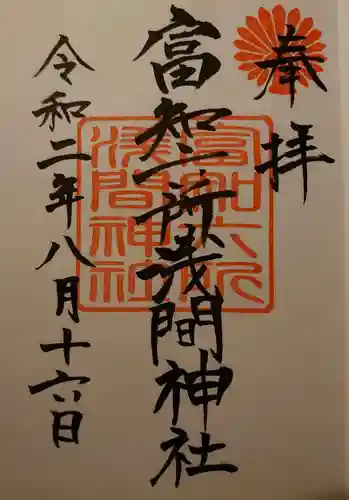 奉拝
富知六所浅間神社
令和二年八月十六日
富知六所
浅間神社